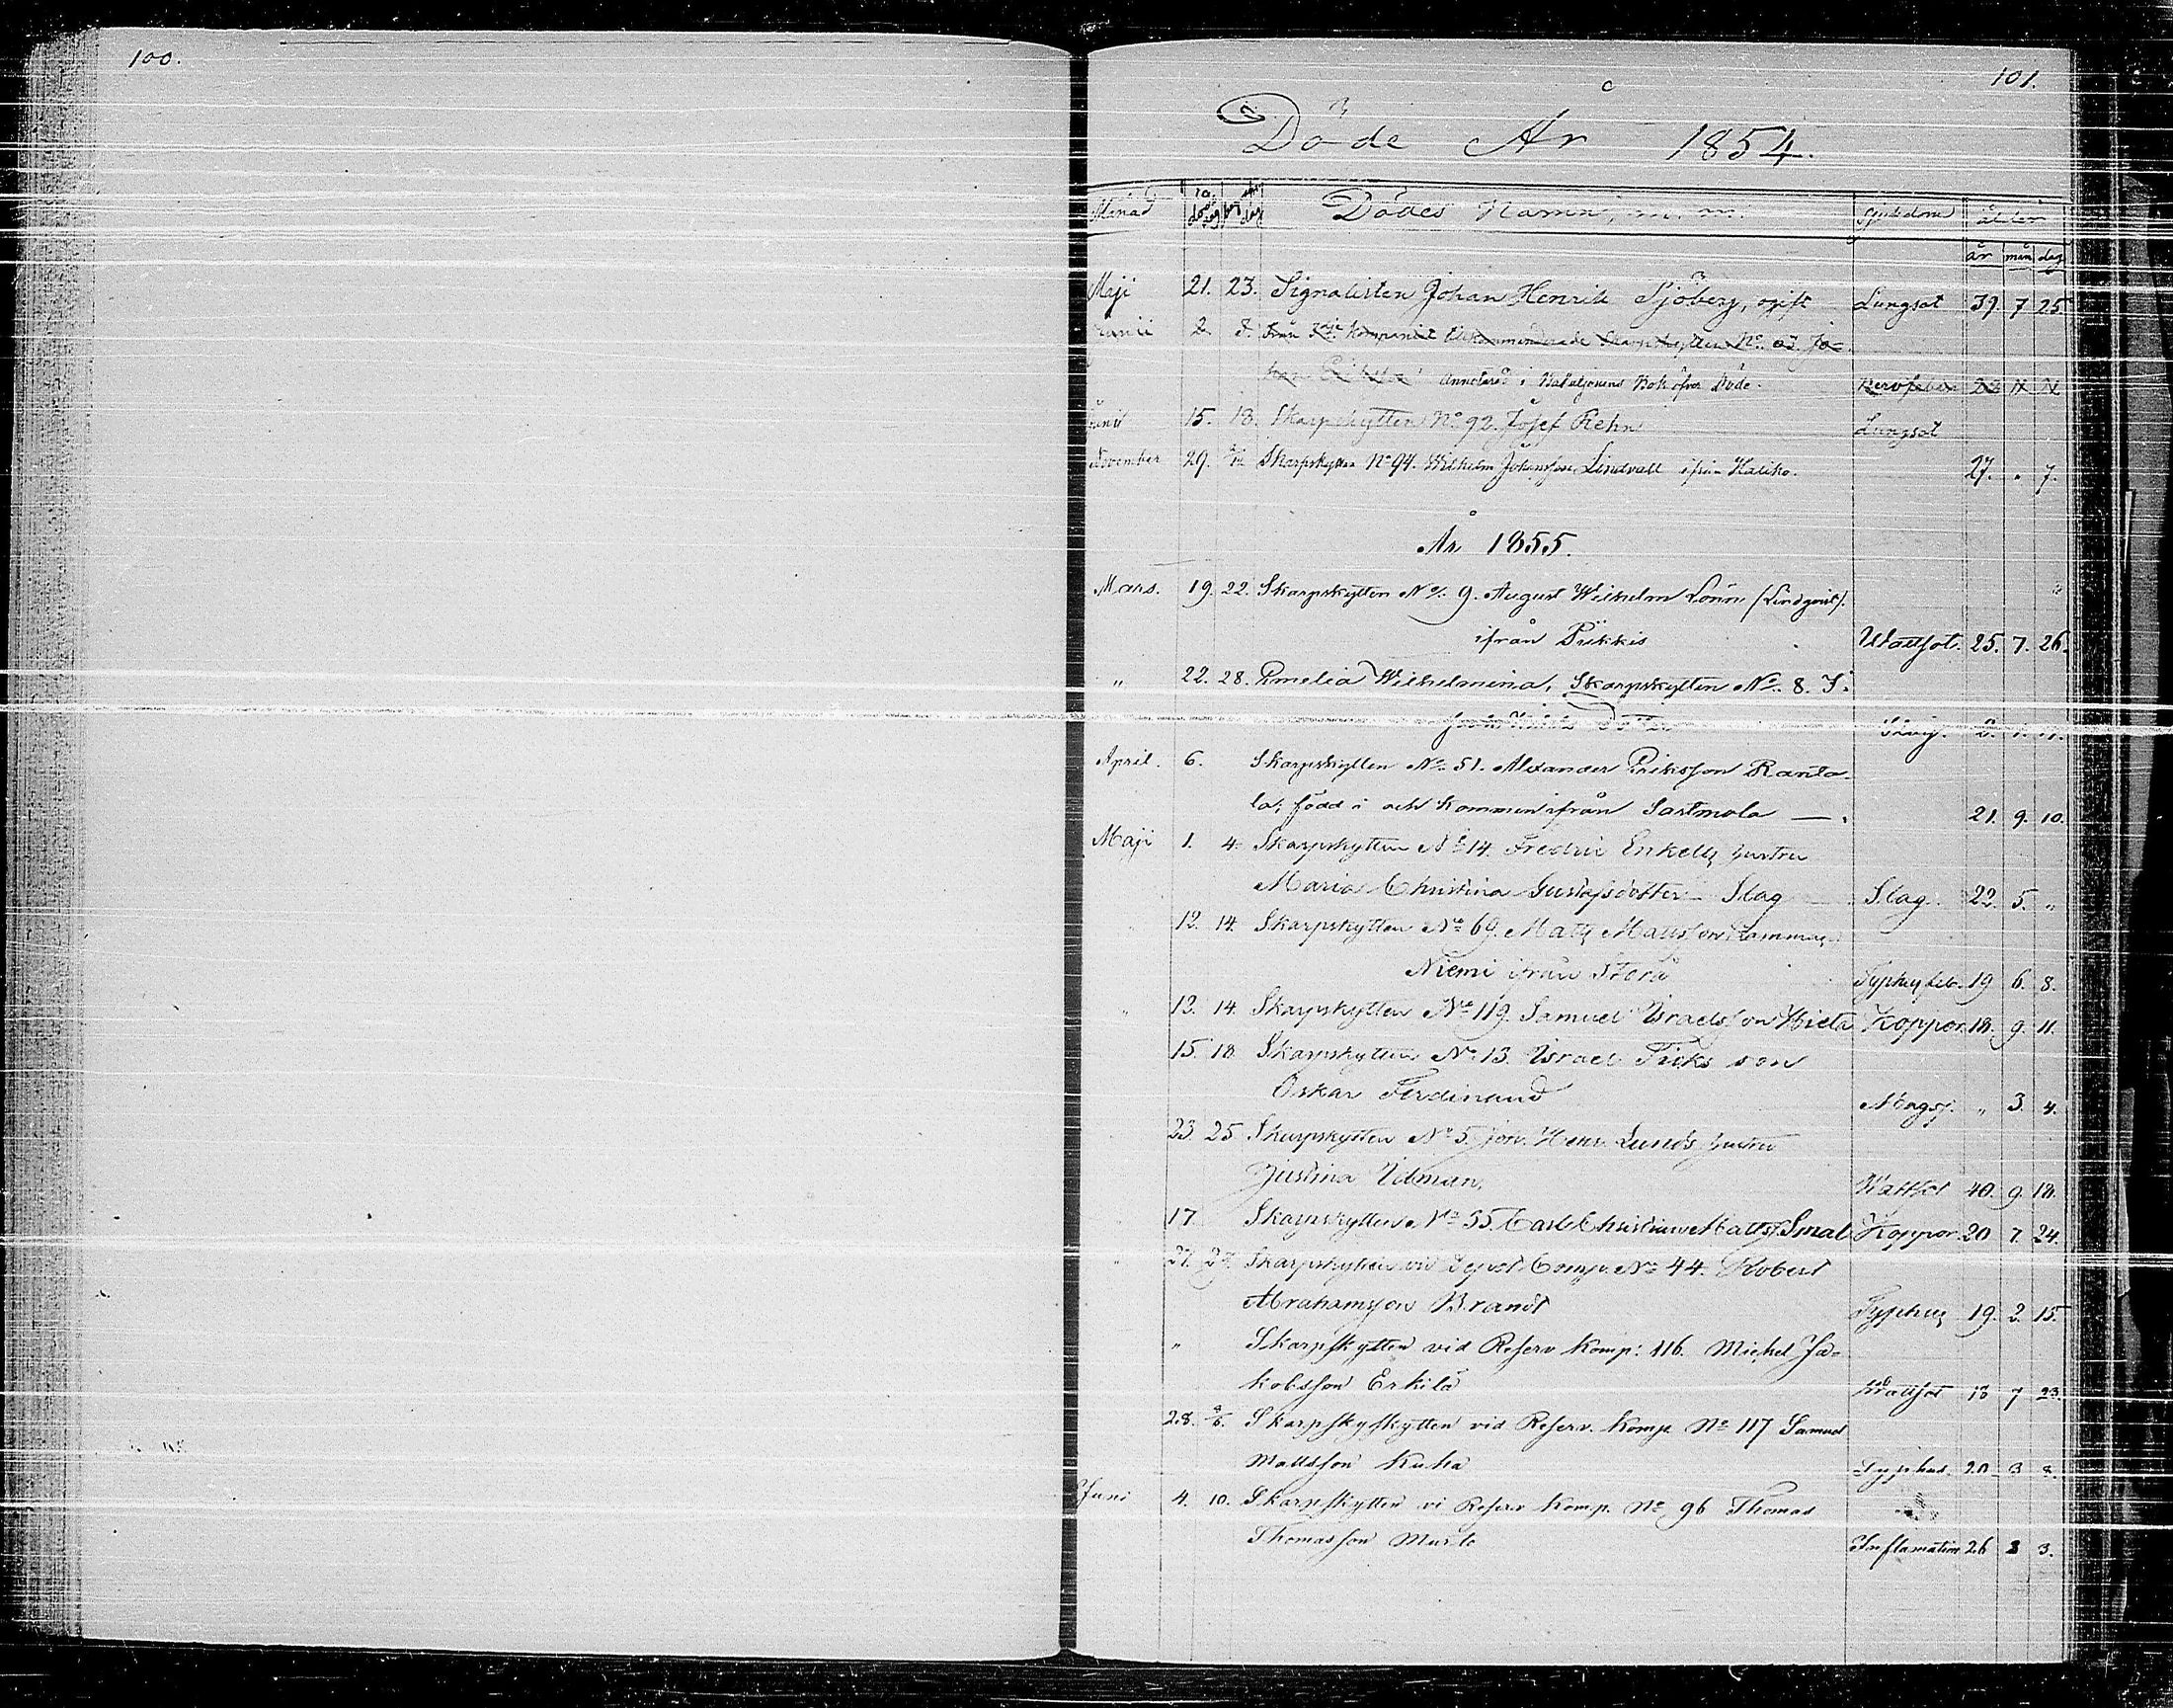 100.
101.
Döde År 1854.
Månad döds dag Dödes Namn, m. m. Sjukdom ålder
år mån dag
Maji 21. 23. Signalisten Johan Henrik Sjöberg, ogift Lungsot 39. 7 25
Junii 2. 8. Från Kompaniet Utkommenderade Skarpskytten No. 63. Jo-
annoterad i Bataljonens Bok öfver Döde. Nervfeber
Junii 15. 18. Skarpskytten No 92. Josef Rehn Lungsot
November 29. Skarpskytten No 94. Wilhelm Johansson Lindvall ifrån Haliko. 27. " 7.
År 1855.
Mars. 19. 22. Skarpskytten No. 9. August Wilhelm Lönn (Lindqvist).
ifrån Pikkis Wattsot. 25. 7. 26.
" 22. 28. Emelia Wilhelmina, Skarpskytten No. 8. J.
Dotter Slag.
April. 6. Skarpskytten No. 51. Alexander Eriksson Ranta-
la, född i och kommen ifrån Sastmola —. 21. 9. 10.
Maji 1. 4. Skarpskytten No 14. Fredric Enkells hustru
Maria Christina Gustafsdotter – Slag Slag. 22. 5. "
" 12. 14. Skarpskytten No 69. Mats Mattsson
Niemi ifrån Storå 19 6. 8.
" 13. 14. Skarpskytten No 119. Samuel Israelsson Hieta Koppor. 18. 9. 11.
15. 18 Skarpskytten No. 13. Israel Ficks son
Oskar Ferdinand Magsj. " 3. 4.
23. 25 Skarpskytten No 5. Joh. Henr. Lunds hustru
Justina Idman, Wattsot 40. 9. 18.
17 Skarpskytten No 35. Carl Christian Matts. Smal Koppor. 20 7. 24.
" 27. 29. Skarpskytten vid Depot Comp. No 44. Robert
Abrahamsson Brandt Typhus 19. 2. 15.
" Skarpskytten vid Reserv Komp: 116. Michel Ja-
kobsson Erkilä Wattsot 18 7 23.
28. 3/6. Skarpskyskytten vid Reserv. Komp. No 117 Samuel
Mattsson Kuha Typhus. 20 3 8.
Juni 4. 10. Skarpskytten vi Reserv Komp. No 96 Thomas
Thomasson Murto Inflamation 26 3 3.